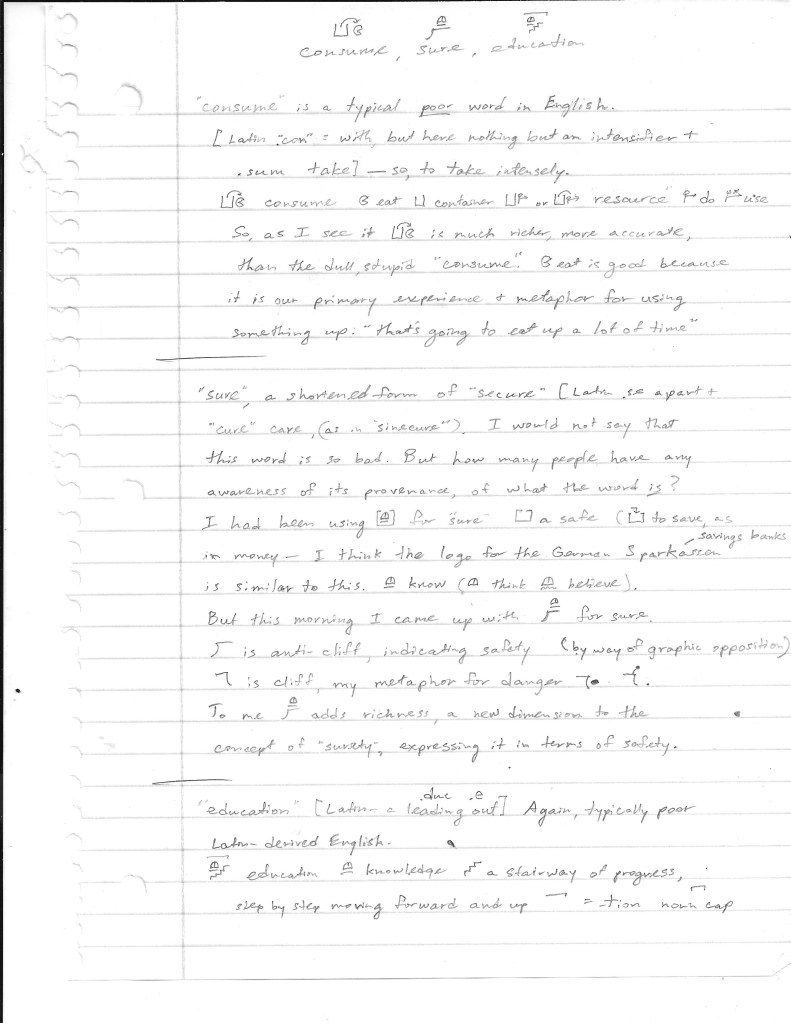 consume, sure, education
"consume" is a typical poor word in English.
[Latin "con" = with, but here nothing but an intensifier +
.sum take] — so, to take intensely.
consume eat container or resource do use
So, as I see it is much richer, more accurate,
than the dull, stupid "consume". eat is good because
it is our primary experience + metaphor for using
something up: "that's going to eat up a lot of time"
"sure", a shortened form of "secure" [Latin .se apart +
"cure" care, (as in "sinecure"). I would not say that
this word is so bad. But how many people have any
awareness of its provenance, of what the word is?
I had been using for "sure" a safe ( to save, as
savings banks
in money — I think the logo for the German Sparkassen
is similar to this. know ( think believe).
But this morning I came up with for sure.
is anti-cliff, indicating safety (by way of graphic opposition)
is cliff, my metaphor for danger
To me adds richness, a new dimension to the
concept of "surety", expressing it in terms of safety.
.duc .e
"education" [Latin - a leading out] Again, typically poor
Latin-derived English.
education knowledge a stairway of progress,
step by step moving forward and up = -tion noun cap